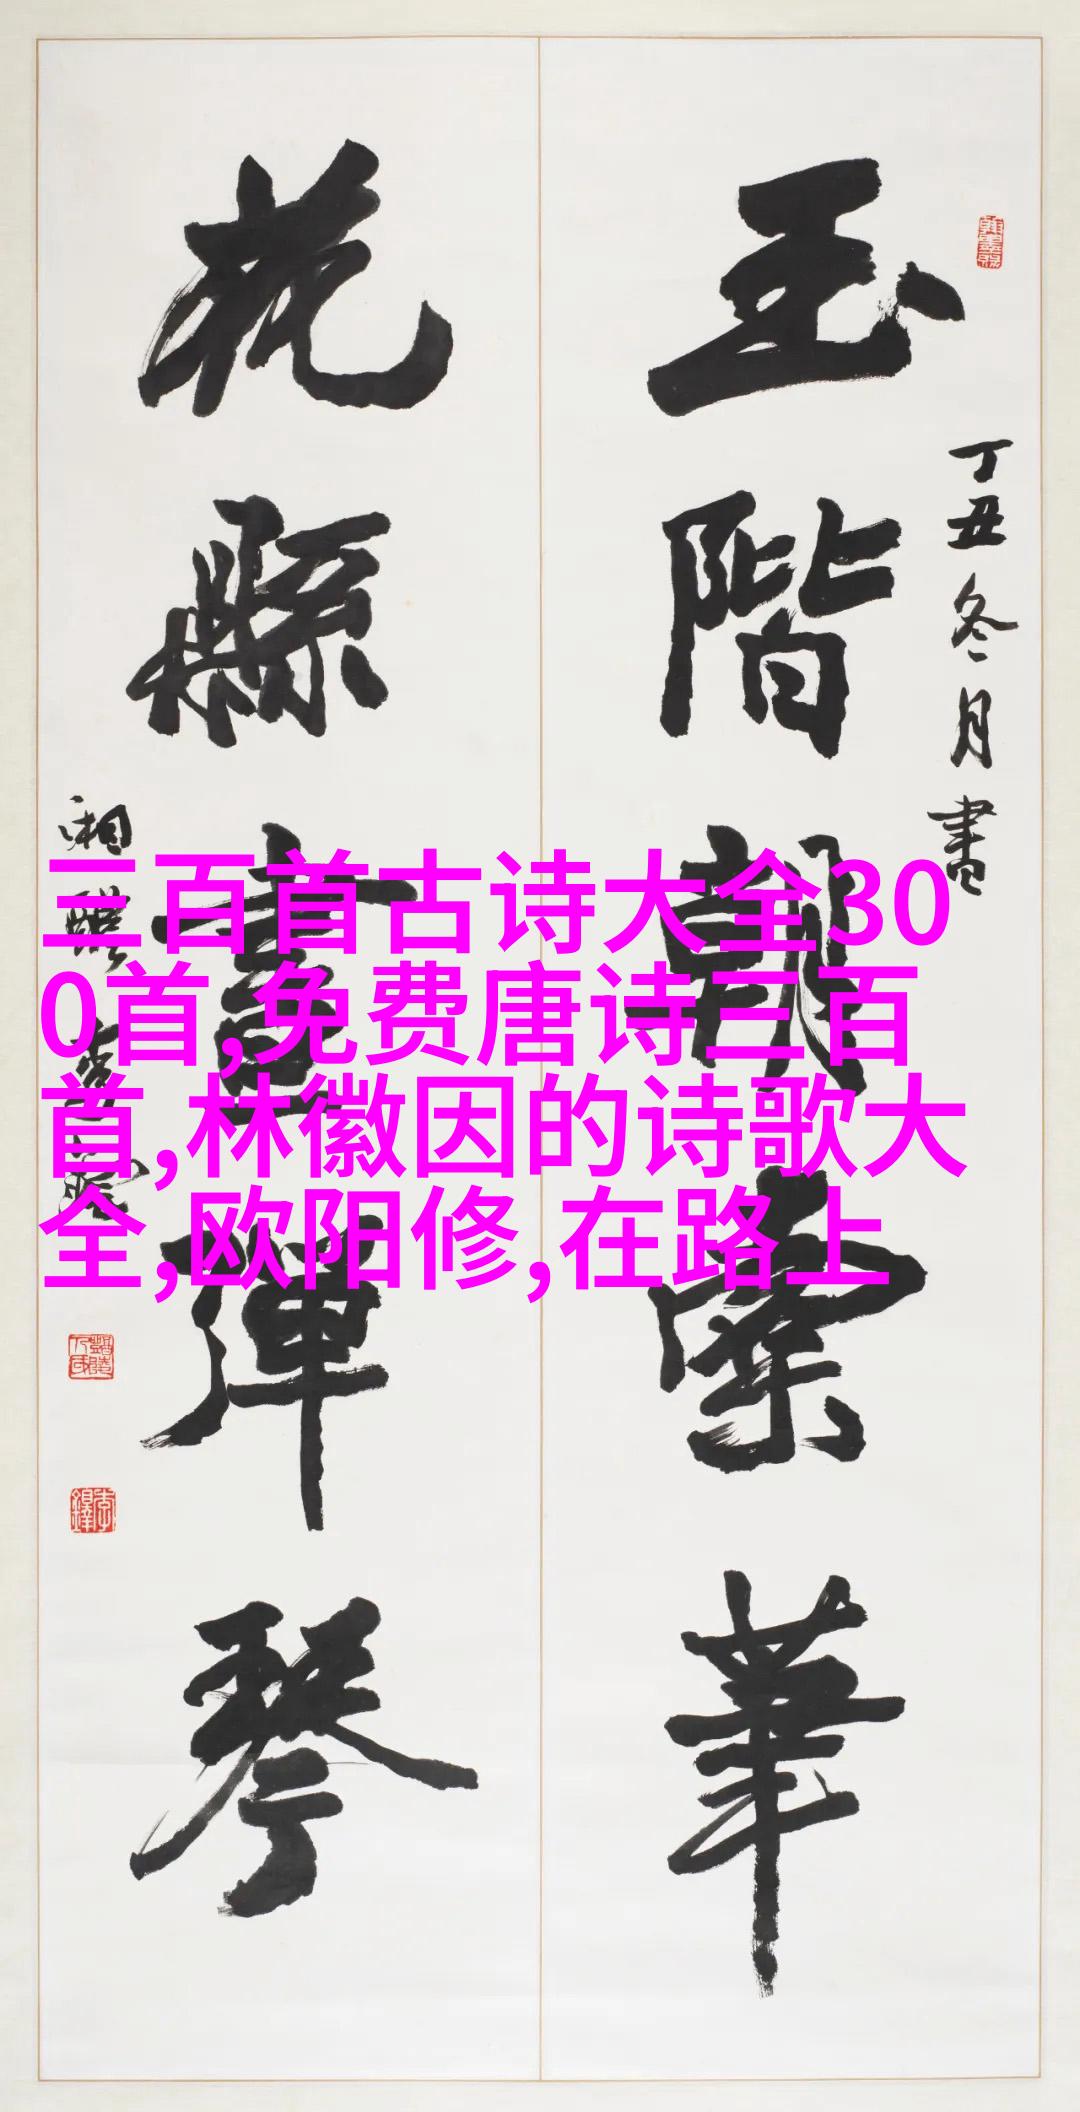 三百首古诗大全30
0首,免费唐诗三百
首,林徽因的诗歌大
全,欧阳修,在路上
丁丑冬月書
玉階朝紫華
花縣畫彈琴
湘